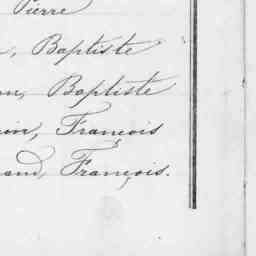 Pierre
, Baptiste
on, Baptiste
in, François
and, François.